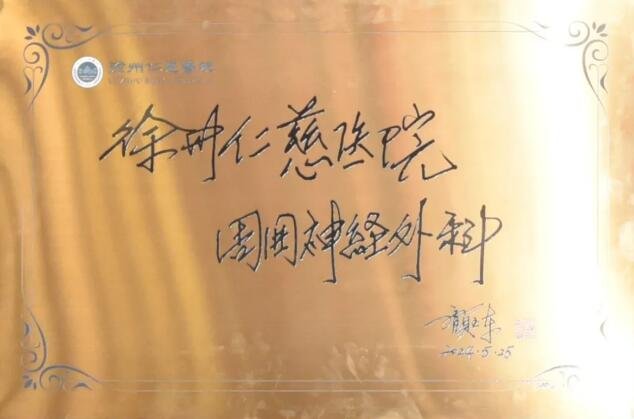 徐州仁慈医院
徐州仁慈医院
周围神经外科
顾玉东
2024.5.25